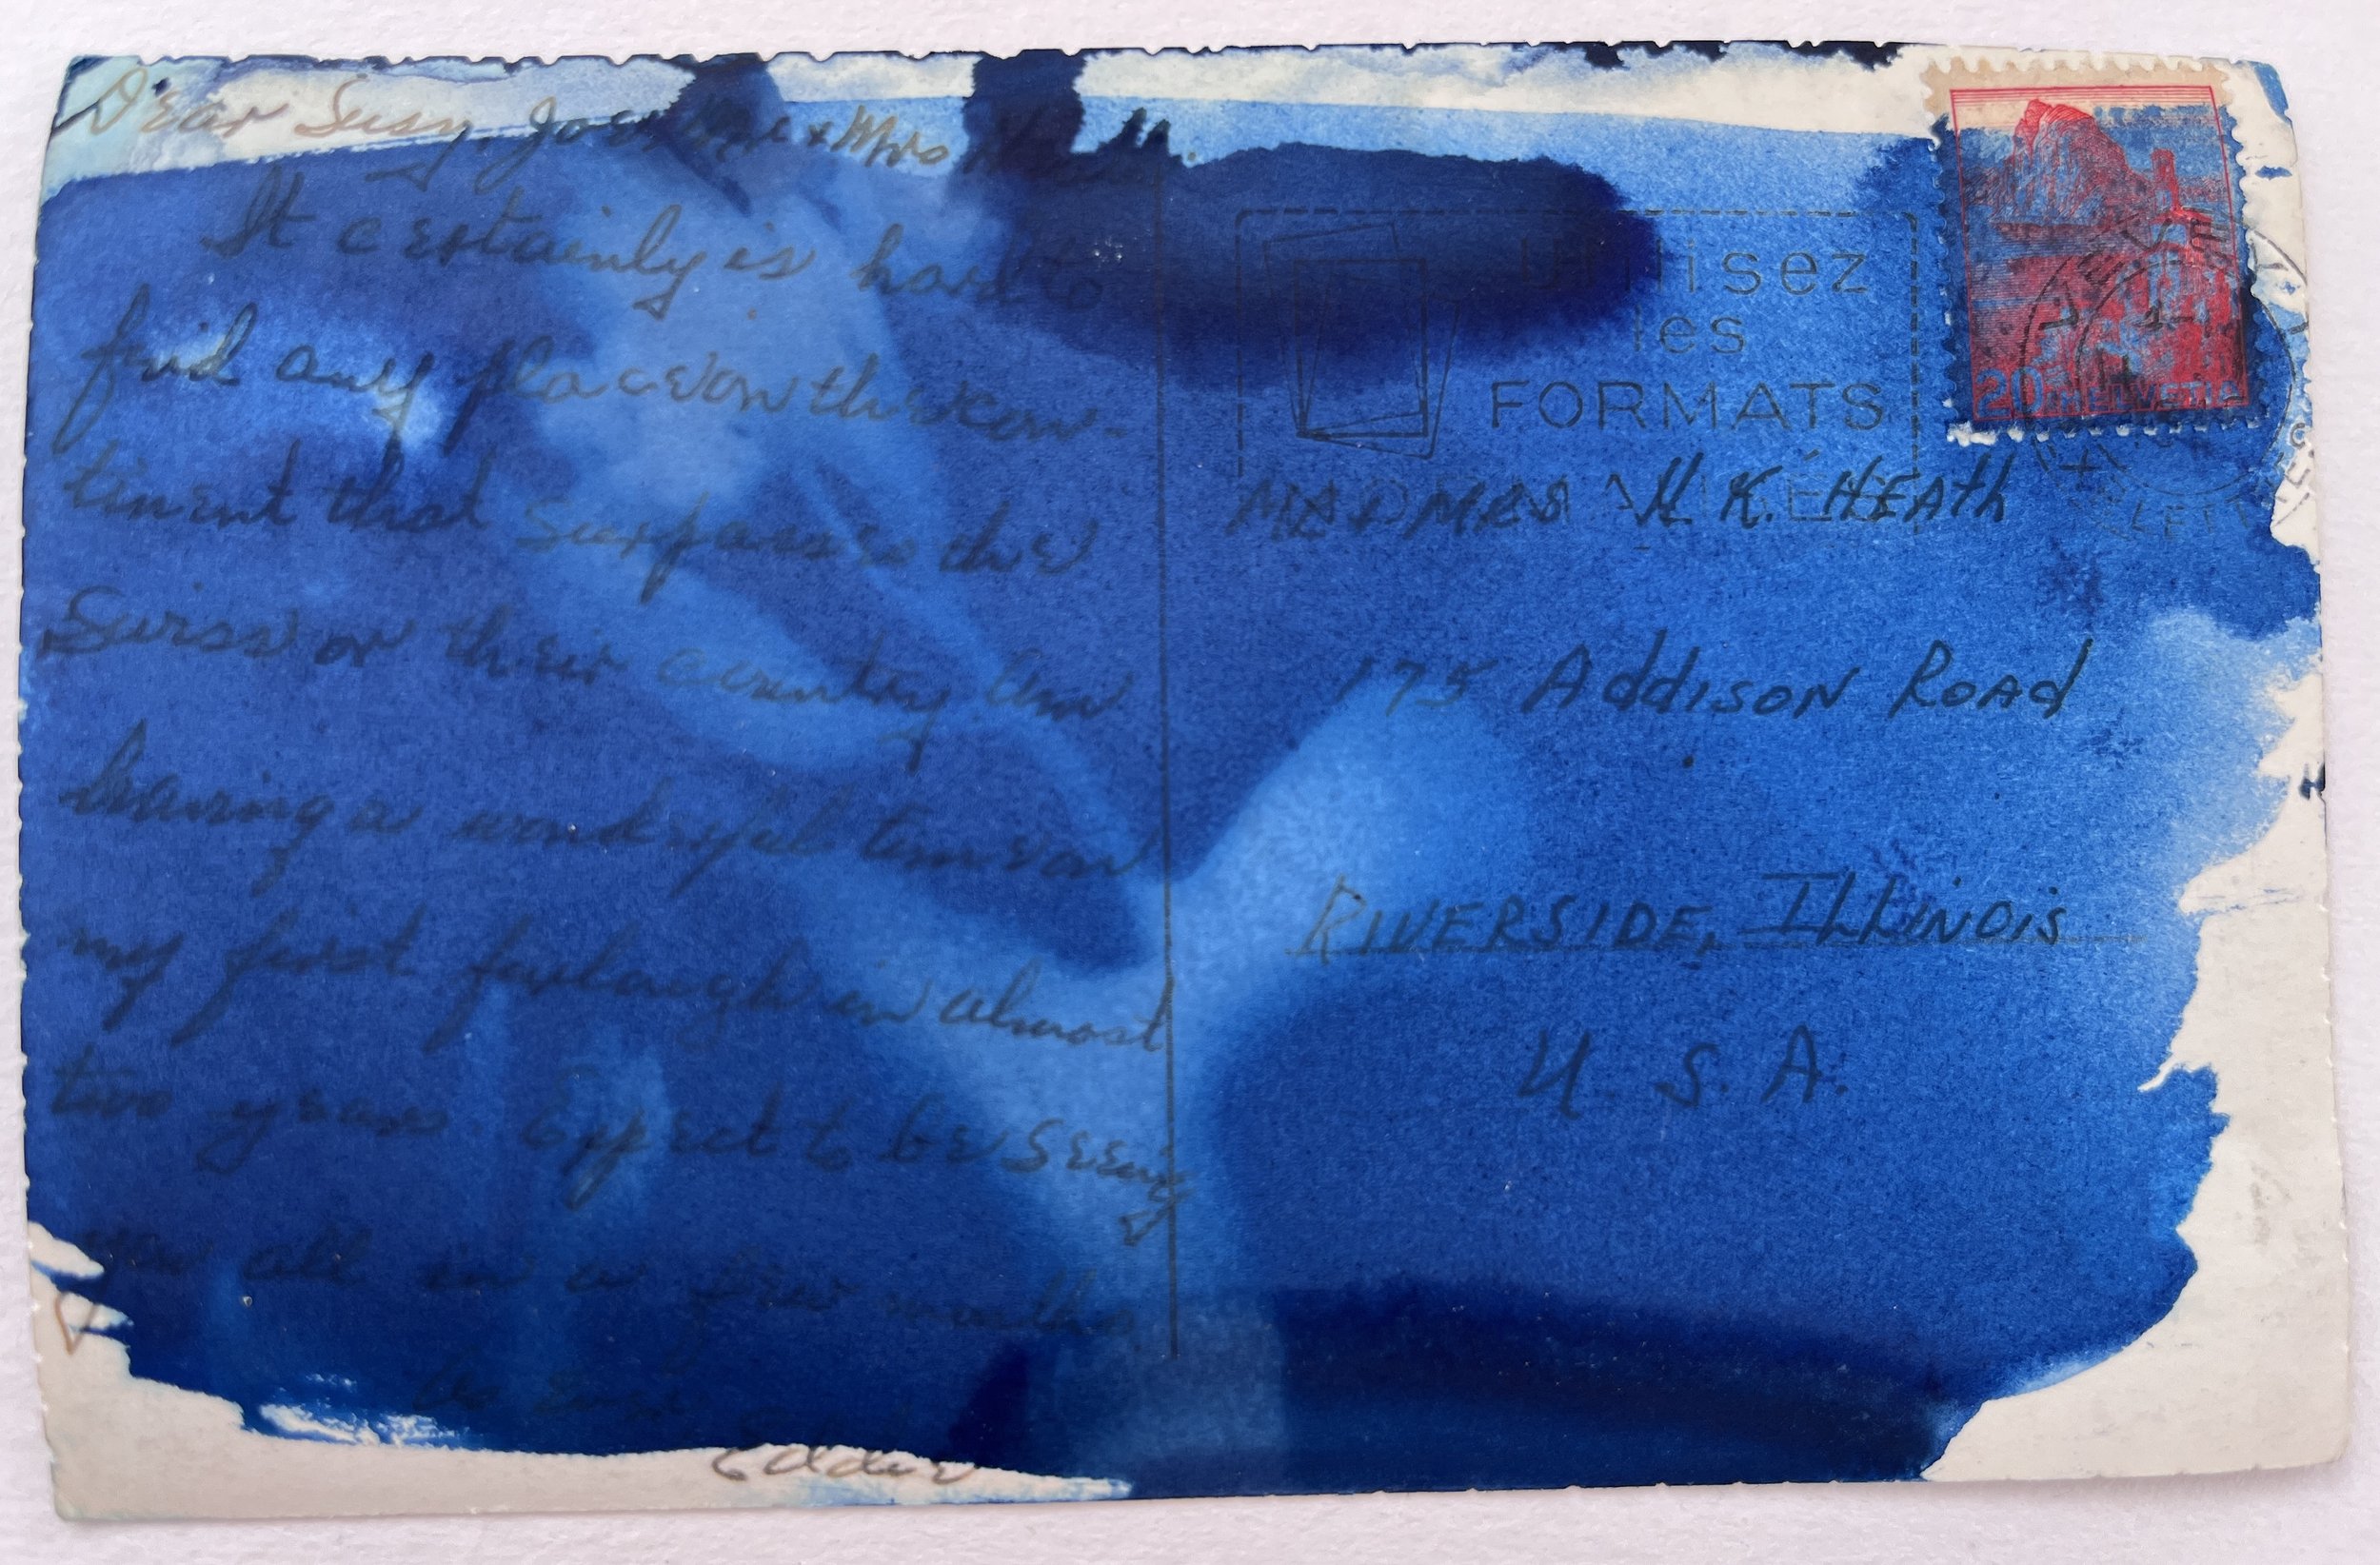 Dear Susy, Joe, Mr + Mrs
It certainly is hard to
find any place on the con-
tinent that surpasses the
Swiss or their country am
having a wonderful time on
my first furlough in almost
two years Expect to be seeing
you all in a few months
Eddie
Utilisez
les
FORMATS
NORMALISÉS
20 HELVETIA
GENÈVE
MR & MRS H. K. HEATH
175 Addison Road
RIVERSIDE, ILLINOIS
U. S. A.